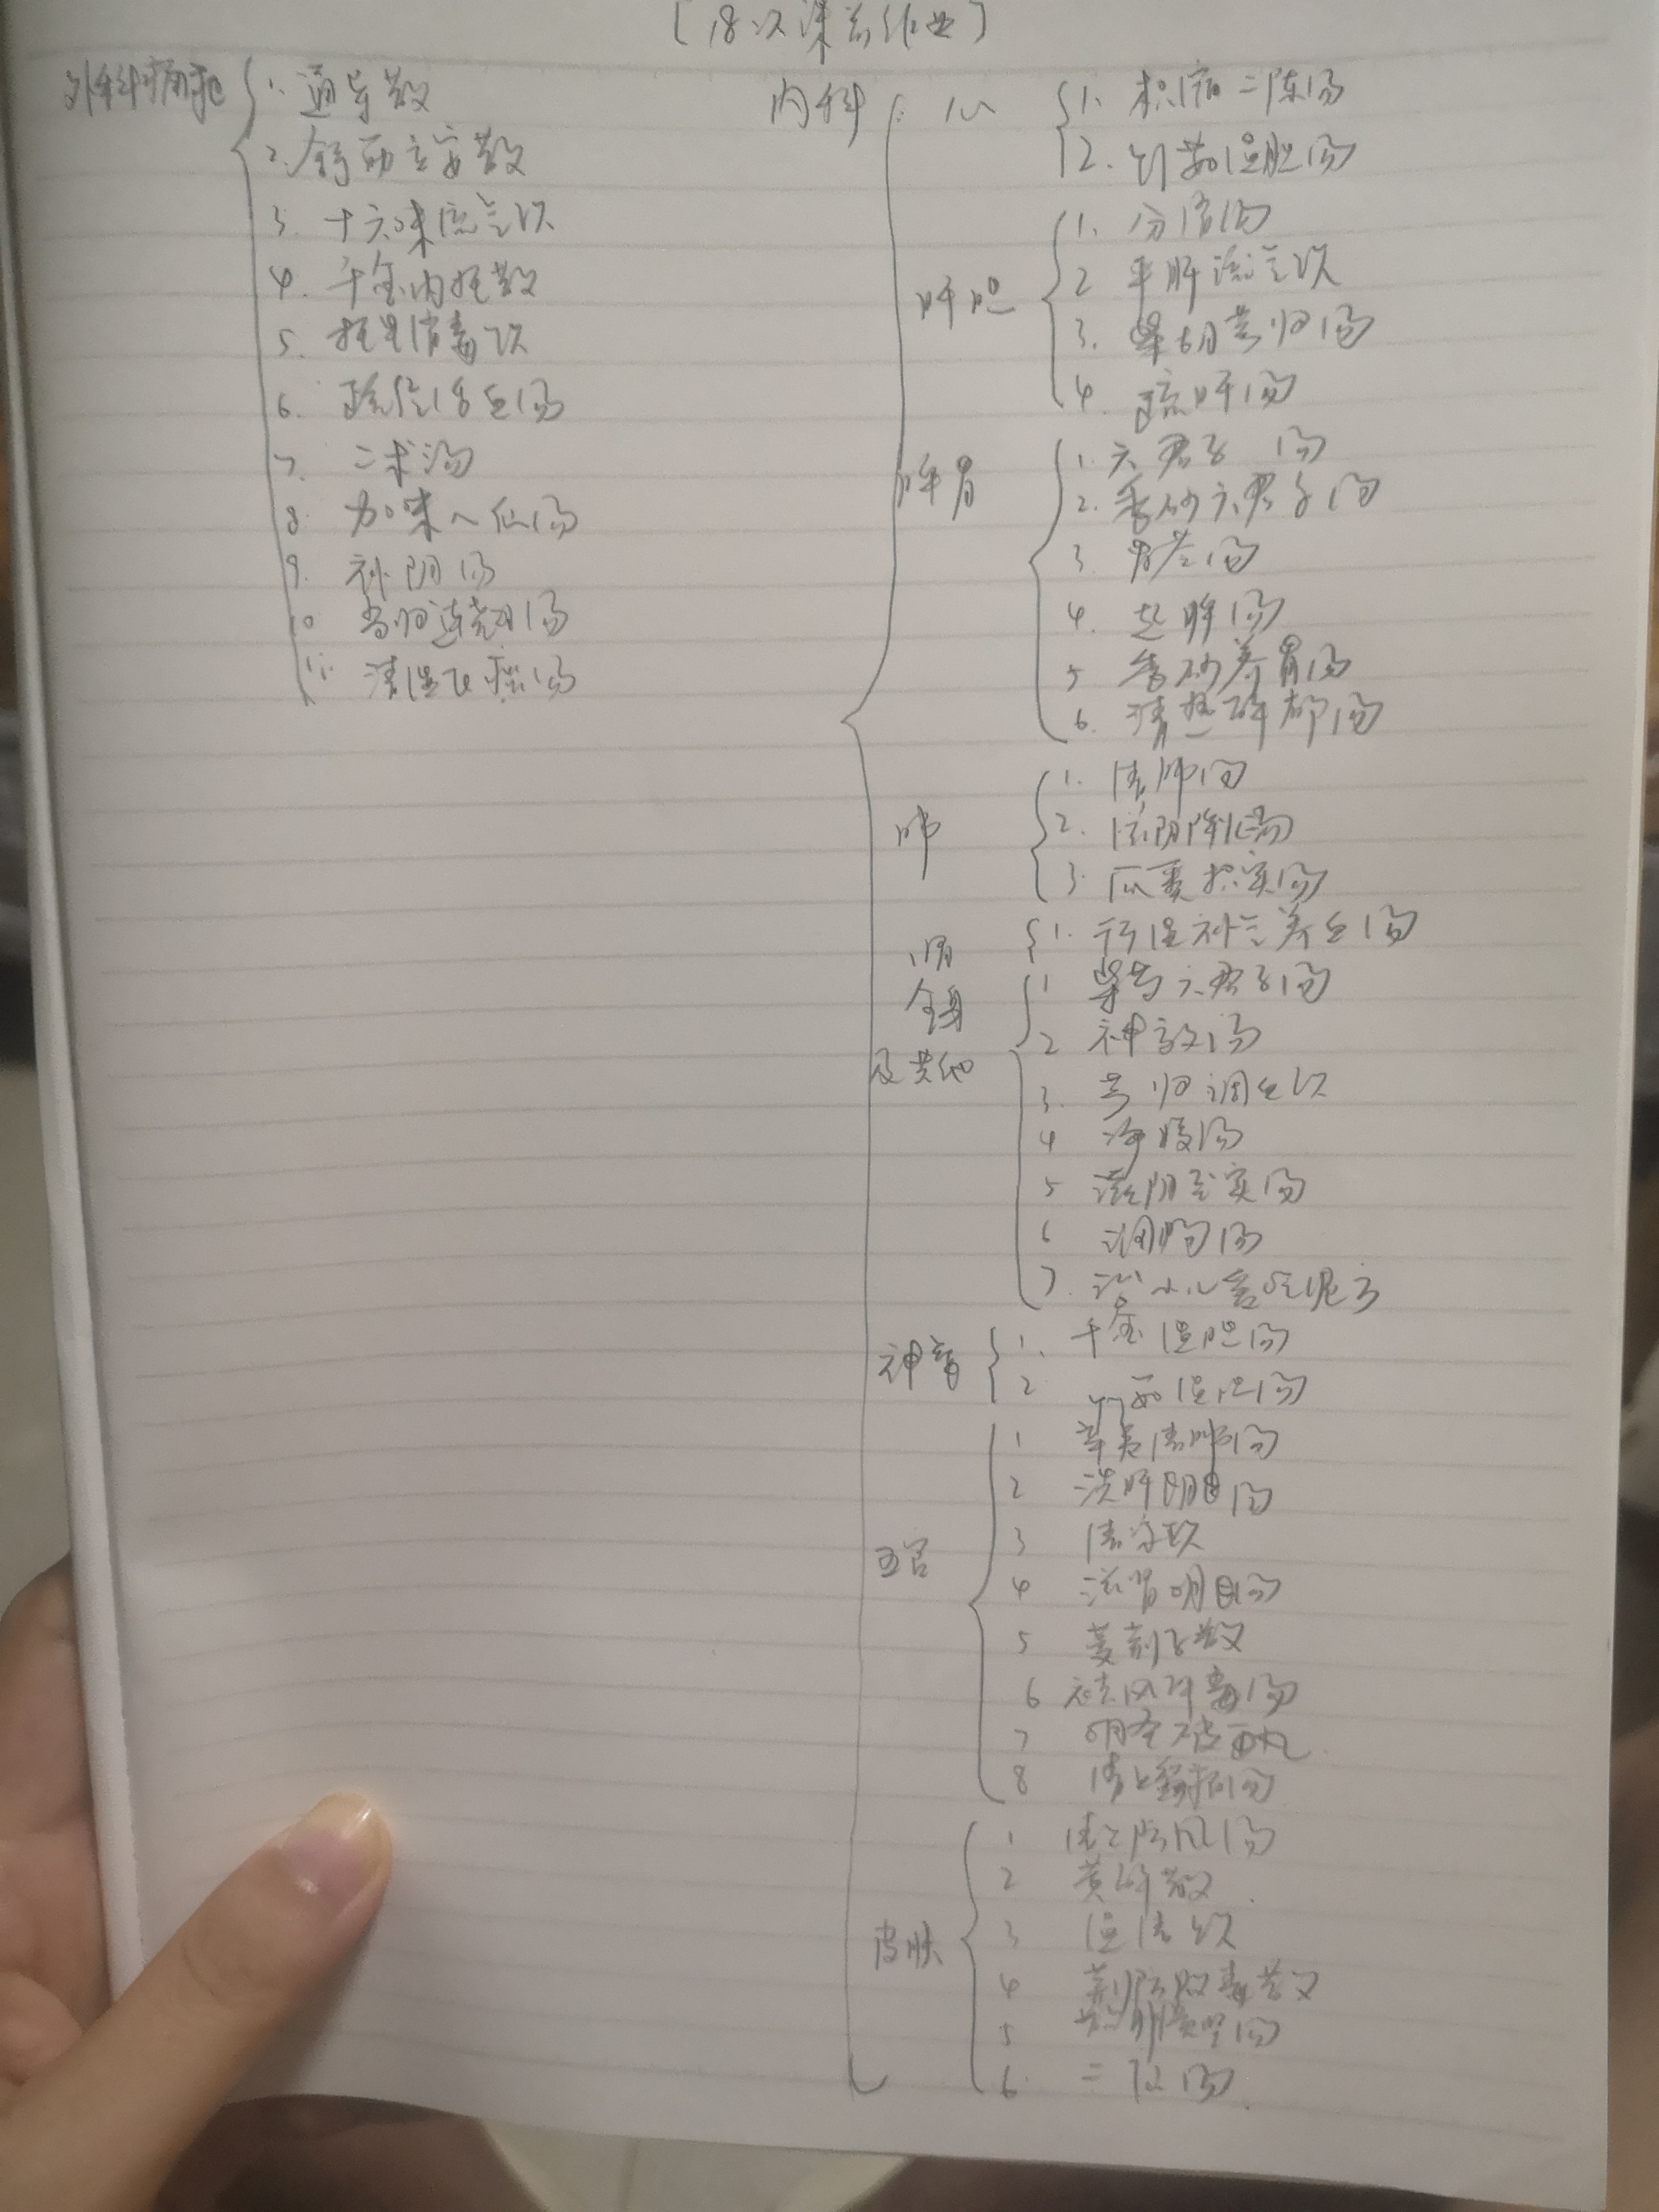 [18次课前作业]
外科
1. 通导散
2. 舒筋立安散
3. 十六味流气饮
4. 千金内托散
5. 托里消毒饮
6. 疏经活血汤
7. 二术汤
8. 加味八仙汤
9. 补阴汤
10 当归连翘汤
11. 清湿化痰汤
内科:
心
1. 枳缩二陈汤
2. 竹茹温胆汤
肝胆
1. 分消汤
2 平肝流气饮
3. 柴胡芎归汤
4. 疏肝汤
脾胃
1. 六君子汤
2. 香砂六君子汤
3. 胃苓汤
4. 启脾汤
5 香砂养胃汤
6. 清热解郁汤
肺
1. 清肺汤
2. 滋阴降火汤
3. 瓜蒌枳实汤
肾
1. 行湿补气养血汤
全身及其他
1 柴芍六君子汤
2 神效汤
3. 芎归调血饮
4
5 滋阴至实汤
6
7. 治小儿
神志
1. 千金温胆汤
2 竹茹温胆汤
五官
1 辛夷清肺汤
2 洗肝明目汤
3
4 滋肾明目汤
5 蔓荆子散
6 祛风解毒汤
7
8 清上蠲痛汤
皮肤
1 清上防风汤
2 黄解散
3 温清饮
4 荆防败毒散
5
6 二汤